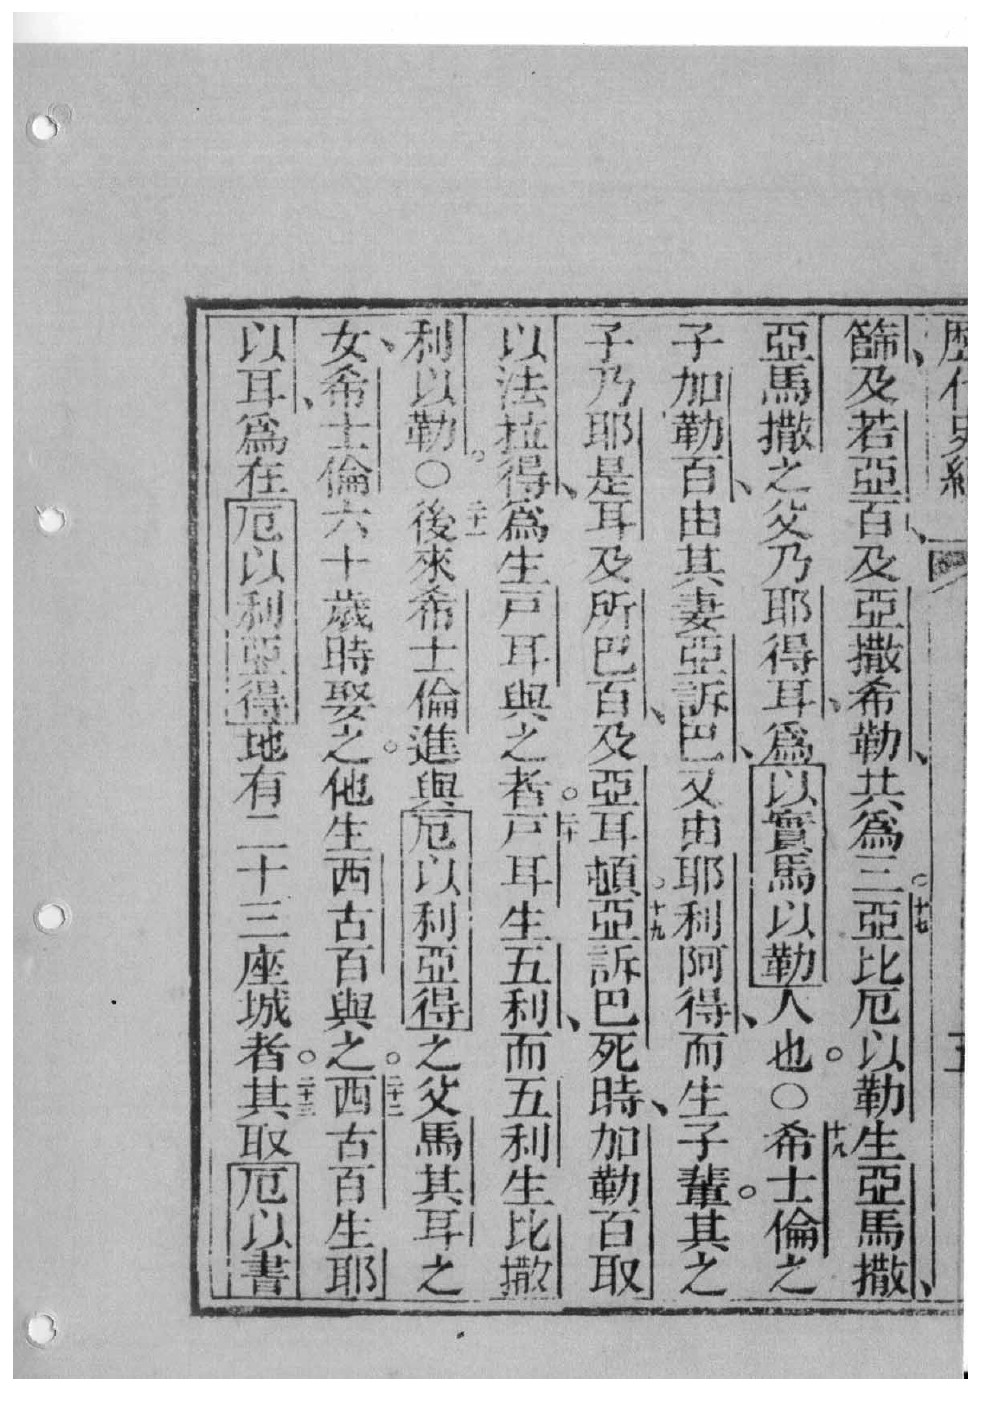 歷代史紀 五
篩及若亞百及亞撒希勒、共爲三。十七亞比厄以勒生亞馬撒、
亞馬撒之父乃耶得耳、爲以實馬以勒人也。○十八希士倫之
子加勒百、由其妻亞訴巴、又由耶利阿得、而生子輩。其之
子乃耶是耳及所巴百、及亞耳頓。十九亞訴巴死時、加勒百取
以法拉得、爲生戸耳與之者。二十戸耳生五利、而五利生比撒
利以勒。○二十一後來希士倫進與厄以利亞得之父馬其耳之
女、希士倫六十歲時娶之。他生西古百與之。二十二西古百生耶
以耳、爲在厄以利亞得地有二十三座城者。二十三其取厄以書